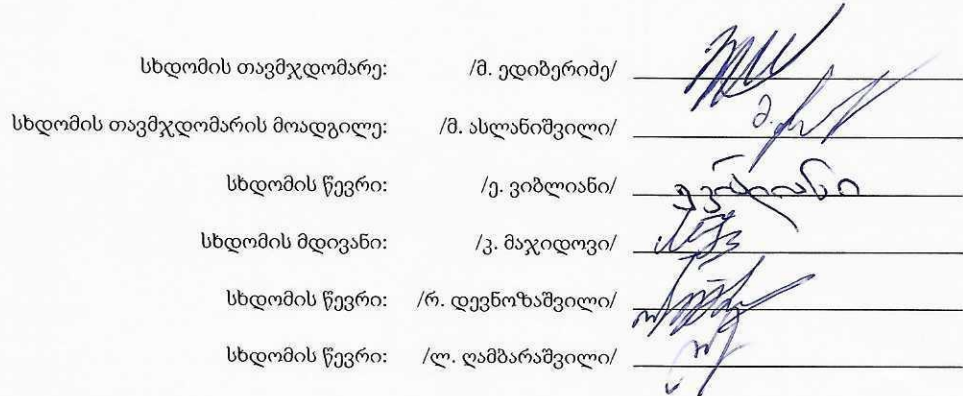 სხდომის თავმჯდომარე: /მ. ედიბერიძე/
სხდომის თავმჯდომარის მოადგილე: /მ. ასლანიშვილი/
სხდომის წევრი: /ე. ვიბლიანი/
სხდომის მდივანი: /კ. მაჯიდოვი/
სხდომის წევრი: /რ. დევნოზაშვილი/
სხდომის წევრი: /ლ. ღამბარაშვილი/